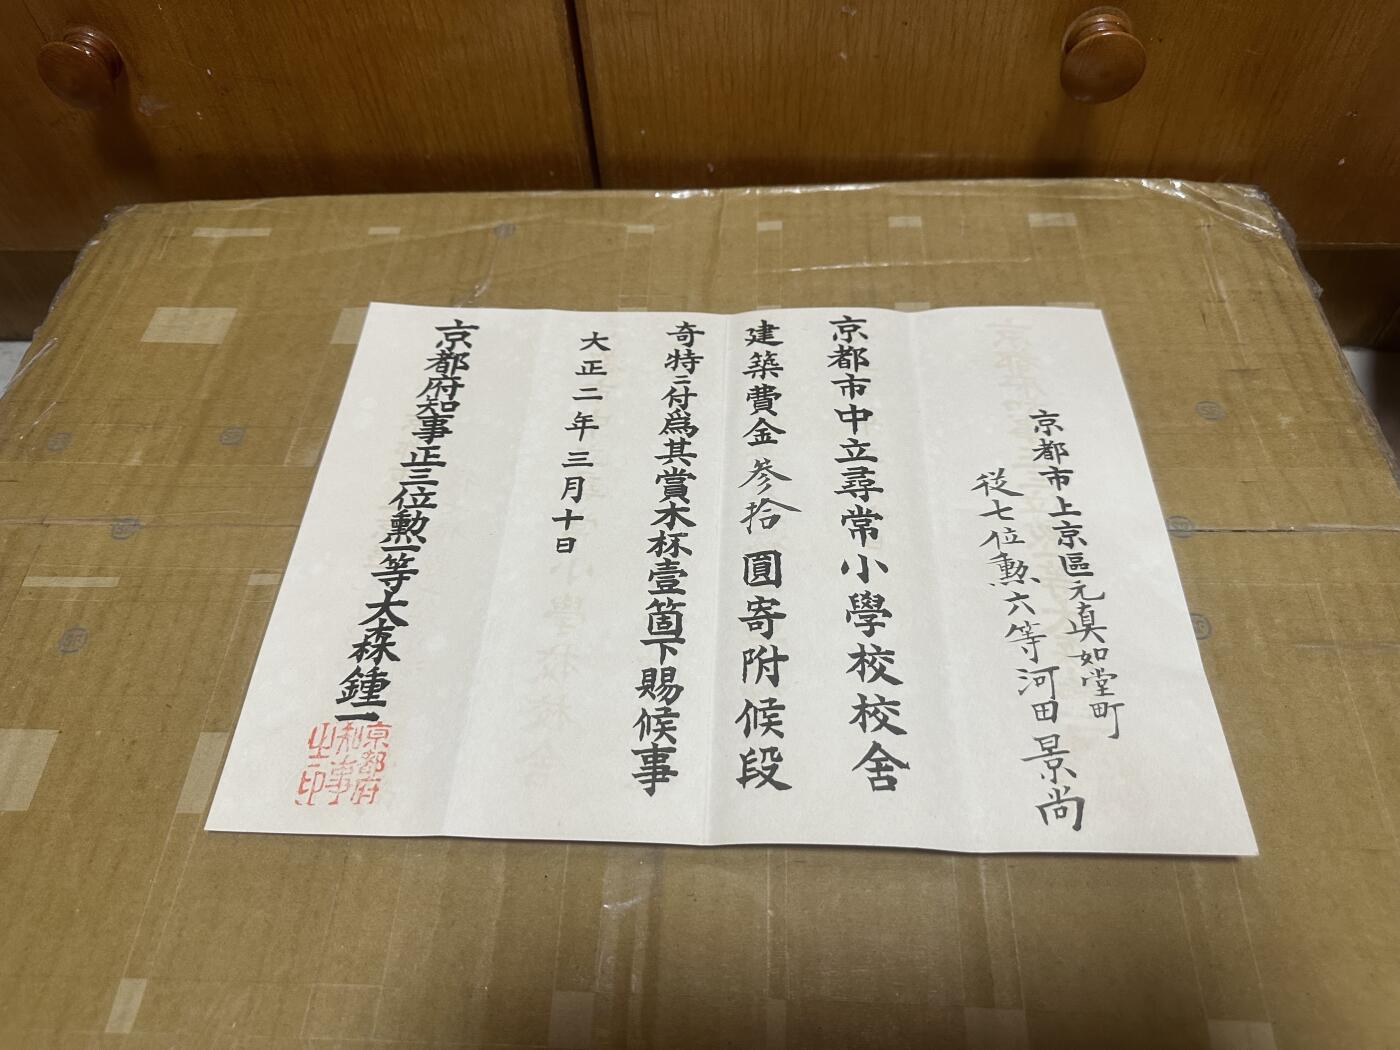 京都市上京區元真如堂町
従七位勲六等河田景尚
京都市中立尋常小學校校舍
建築費金参拾圓寄附候段
奇特ニ付爲其賞木杯壹箇下賜候事
大正二年三月十日
京都府知事正三位勲一等大森鍾一
京都府
知事
之印